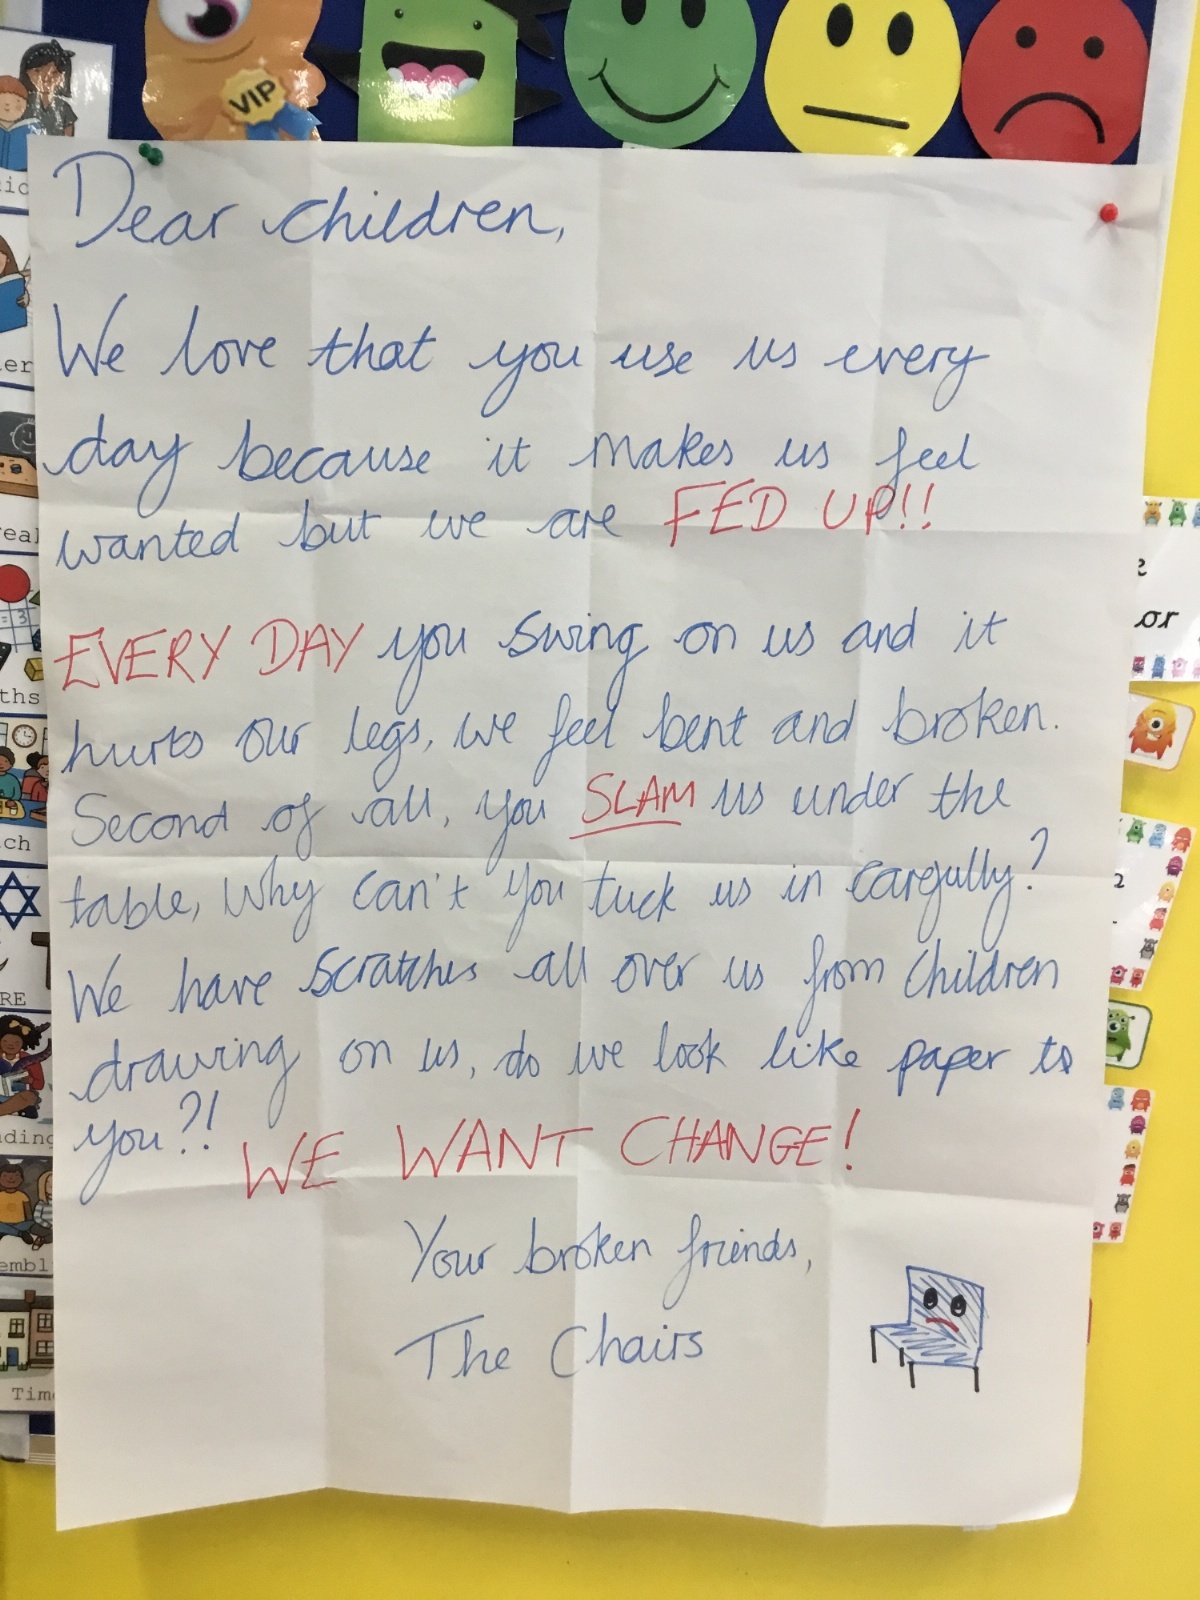 VIP
Dear children,
We love that you use us every
day because it makes us feel
wanted but we are FED UP!!
EVERY DAY you swing on us and it
hurts our legs, we feel bent and broken.
Second of all, you SLAM us under the
table, Why can't you tuck us in carefully?
We have scratches all over us from children
drawing on us, do we look like paper to
you?!
WE WANT CHANGE!
Your broken friends,
The Chairs
or